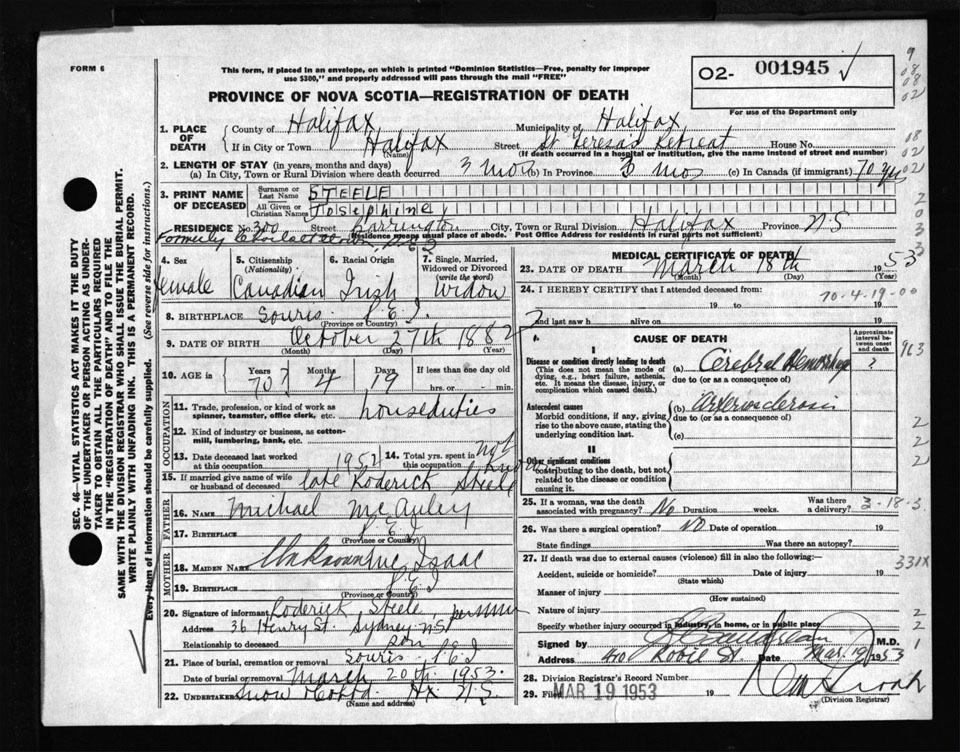 FORM 6
This form, if placed in an envelope, on which is printed "Dominion Statistics—Free, penalty for improper
use $300," and properly addressed will pass through the mail "FREE"
PROVINCE OF NOVA SCOTIA—REGISTRATION OF DEATH
02- 001945 ✓
For use of the Department only
9
08
08
02
08
02
02
2
0
3
3
SEC. 46—VITAL STATISTICS ACT MAKES IT THE DUTY
OF THE UNDERTAKER OR PERSON ACTING AS UNDER-
TAKER TO OBTAIN ALL THE PARTICULARS REQUIRED
IN THE "REGISTRATION OF DEATH" AND TO FILE THE
SAME WITH THE DIVISION REGISTRAR WHO SHALL ISSUE THE BURIAL PERMIT.
WRITE PLAINLY WITH UNFADING INK. THIS IS A PERMANENT RECORD.
Every item of information should be carefully supplied. (See reverse side for instructions.)
1. PLACE OF DEATH County of Halifax Municipality of Halifax
If in City or Town Halifax Street St Teresas Retreat House No.
(Name) (If death occurred in a hospital or institution, give the name instead of street and number)
2. LENGTH OF STAY (in years, months and days)
(a) In City, Town or Rural Division where death occurred 3 mos (b) In Province 3 mos (c) In Canada (if immigrant) 70 yrs
3. PRINT NAME OF DECEASED Surname or Last Name STEELE
All Given or Christian Names Josephine
RESIDENCE No. 300 Street Barrington City, Town or Rural Division Halifax Province NS
Formerly
Residence means usual place of abode. Post Office Address for residents in rural parts not sufficient)
4. Sex 5. Citizenship (Nationality) 6. Racial Origin 7. Single, Married, Widowed or Divorced (write the word)
female Canadian Irish Widow
8. BIRTHPLACE Souris P.E.I.
(Province or Country)
9. DATE OF BIRTH October 27th 1882
(Month) (Day) (Year)
10. AGE in Years 70 Months 4 Days 19 If less than one day old
hrs. or min.
OCCUPATION
11. Trade, profession, or kind of work as spinner, teamster, office clerk, etc. houseduties
12. Kind of industry or business, as cotton-mill, lumbering, bank, etc.
13. Date deceased last worked at this occupation 1952 14. Total yrs. spent in this occupation
15. If married give name of wife or husband of deceased late Roderick Steele
FATHER
16. NAME Michael McAuley
17. BIRTHPLACE P.E.I.
(Province or Country)
MOTHER
18. MAIDEN NAME Isaac
19. BIRTHPLACE P.E.I
(Province or Country)
20. Signature of informant Roderick Steele per
Address 36 Henry St. Sydney N.S.
Relationship to deceased son
21. Place of burial, cremation or removal Souris P.E.I
Date of burial or removal March 20th 1953.
22. Undertaker Snow Hx N.S.
(Name and address)
MEDICAL CERTIFICATE OF DEATH
23. DATE OF DEATH March 18th 1953
(Month) (Day) (Year)
24. I HEREBY CERTIFY that I attended deceased from:
70-4-19-00
19 to 19
I last saw h alive on 19
CAUSE OF DEATH
Approximate interval between onset and death
963
I
Disease or condition directly leading to death
(This does not mean the mode of dying, e.g., heart failure, asthenia, etc. It means the disease, injury, or complication which caused death.)
(a) Cerebral Hemorrhage ?
due to (or as a consequence of)
Antecedent causes
Morbid conditions, if any, giving rise to the above cause, stating the underlying condition last.
(b) arteriosclerosis
due to (or as a consequence of)
(c)
2
2
2
II
Other significant conditions
contributing to the death, but not related to the disease or condition causing it.
25. If a woman, was the death associated with pregnancy? No Duration weeks. Was there a delivery?
3-18-3
26. Was there a surgical operation? No Date of operation 19
State findings Was there an autopsy?
27. If death was due to external causes (violence) fill in also the following:—
331X
Accident, suicide or homicide? Date of injury 19
(State which)
Manner of injury
(How sustained)
Nature of injury 2
Specify whether injury occurred in industry, in home, or in public place 2
Signed by M.D. 1
Address Robie St. Date Mar. 19 1953
28. Division Registrar's Record Number
29. Filed MAR 19 1953 19
(Division Registrar)